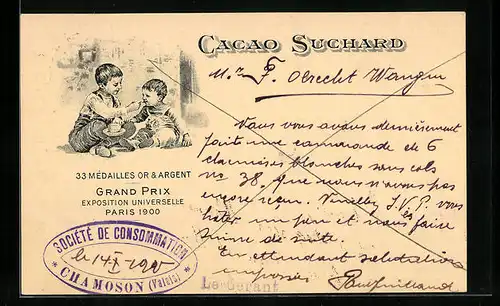 CACAO SUCHARD
Mr F. Obrecht Wangen
33 MÉDAILLES OR & ARGENT
GRAND PRIX
EXPOSITION UNIVERSELLE
PARIS 1900
Vous vous avons dernièrement
fait une commande de 6
chemises blanches sans cols
no 38, que nous n'avons pas
encore reçu. Veuillez S.V.P. vous
hâter un peu et nous faire
de suite.
En attendant salutations
empressées
Le Gérant
SOCIÉTÉ DE CONSOMMATION
le 14
* CHAMOSON (Valais) *